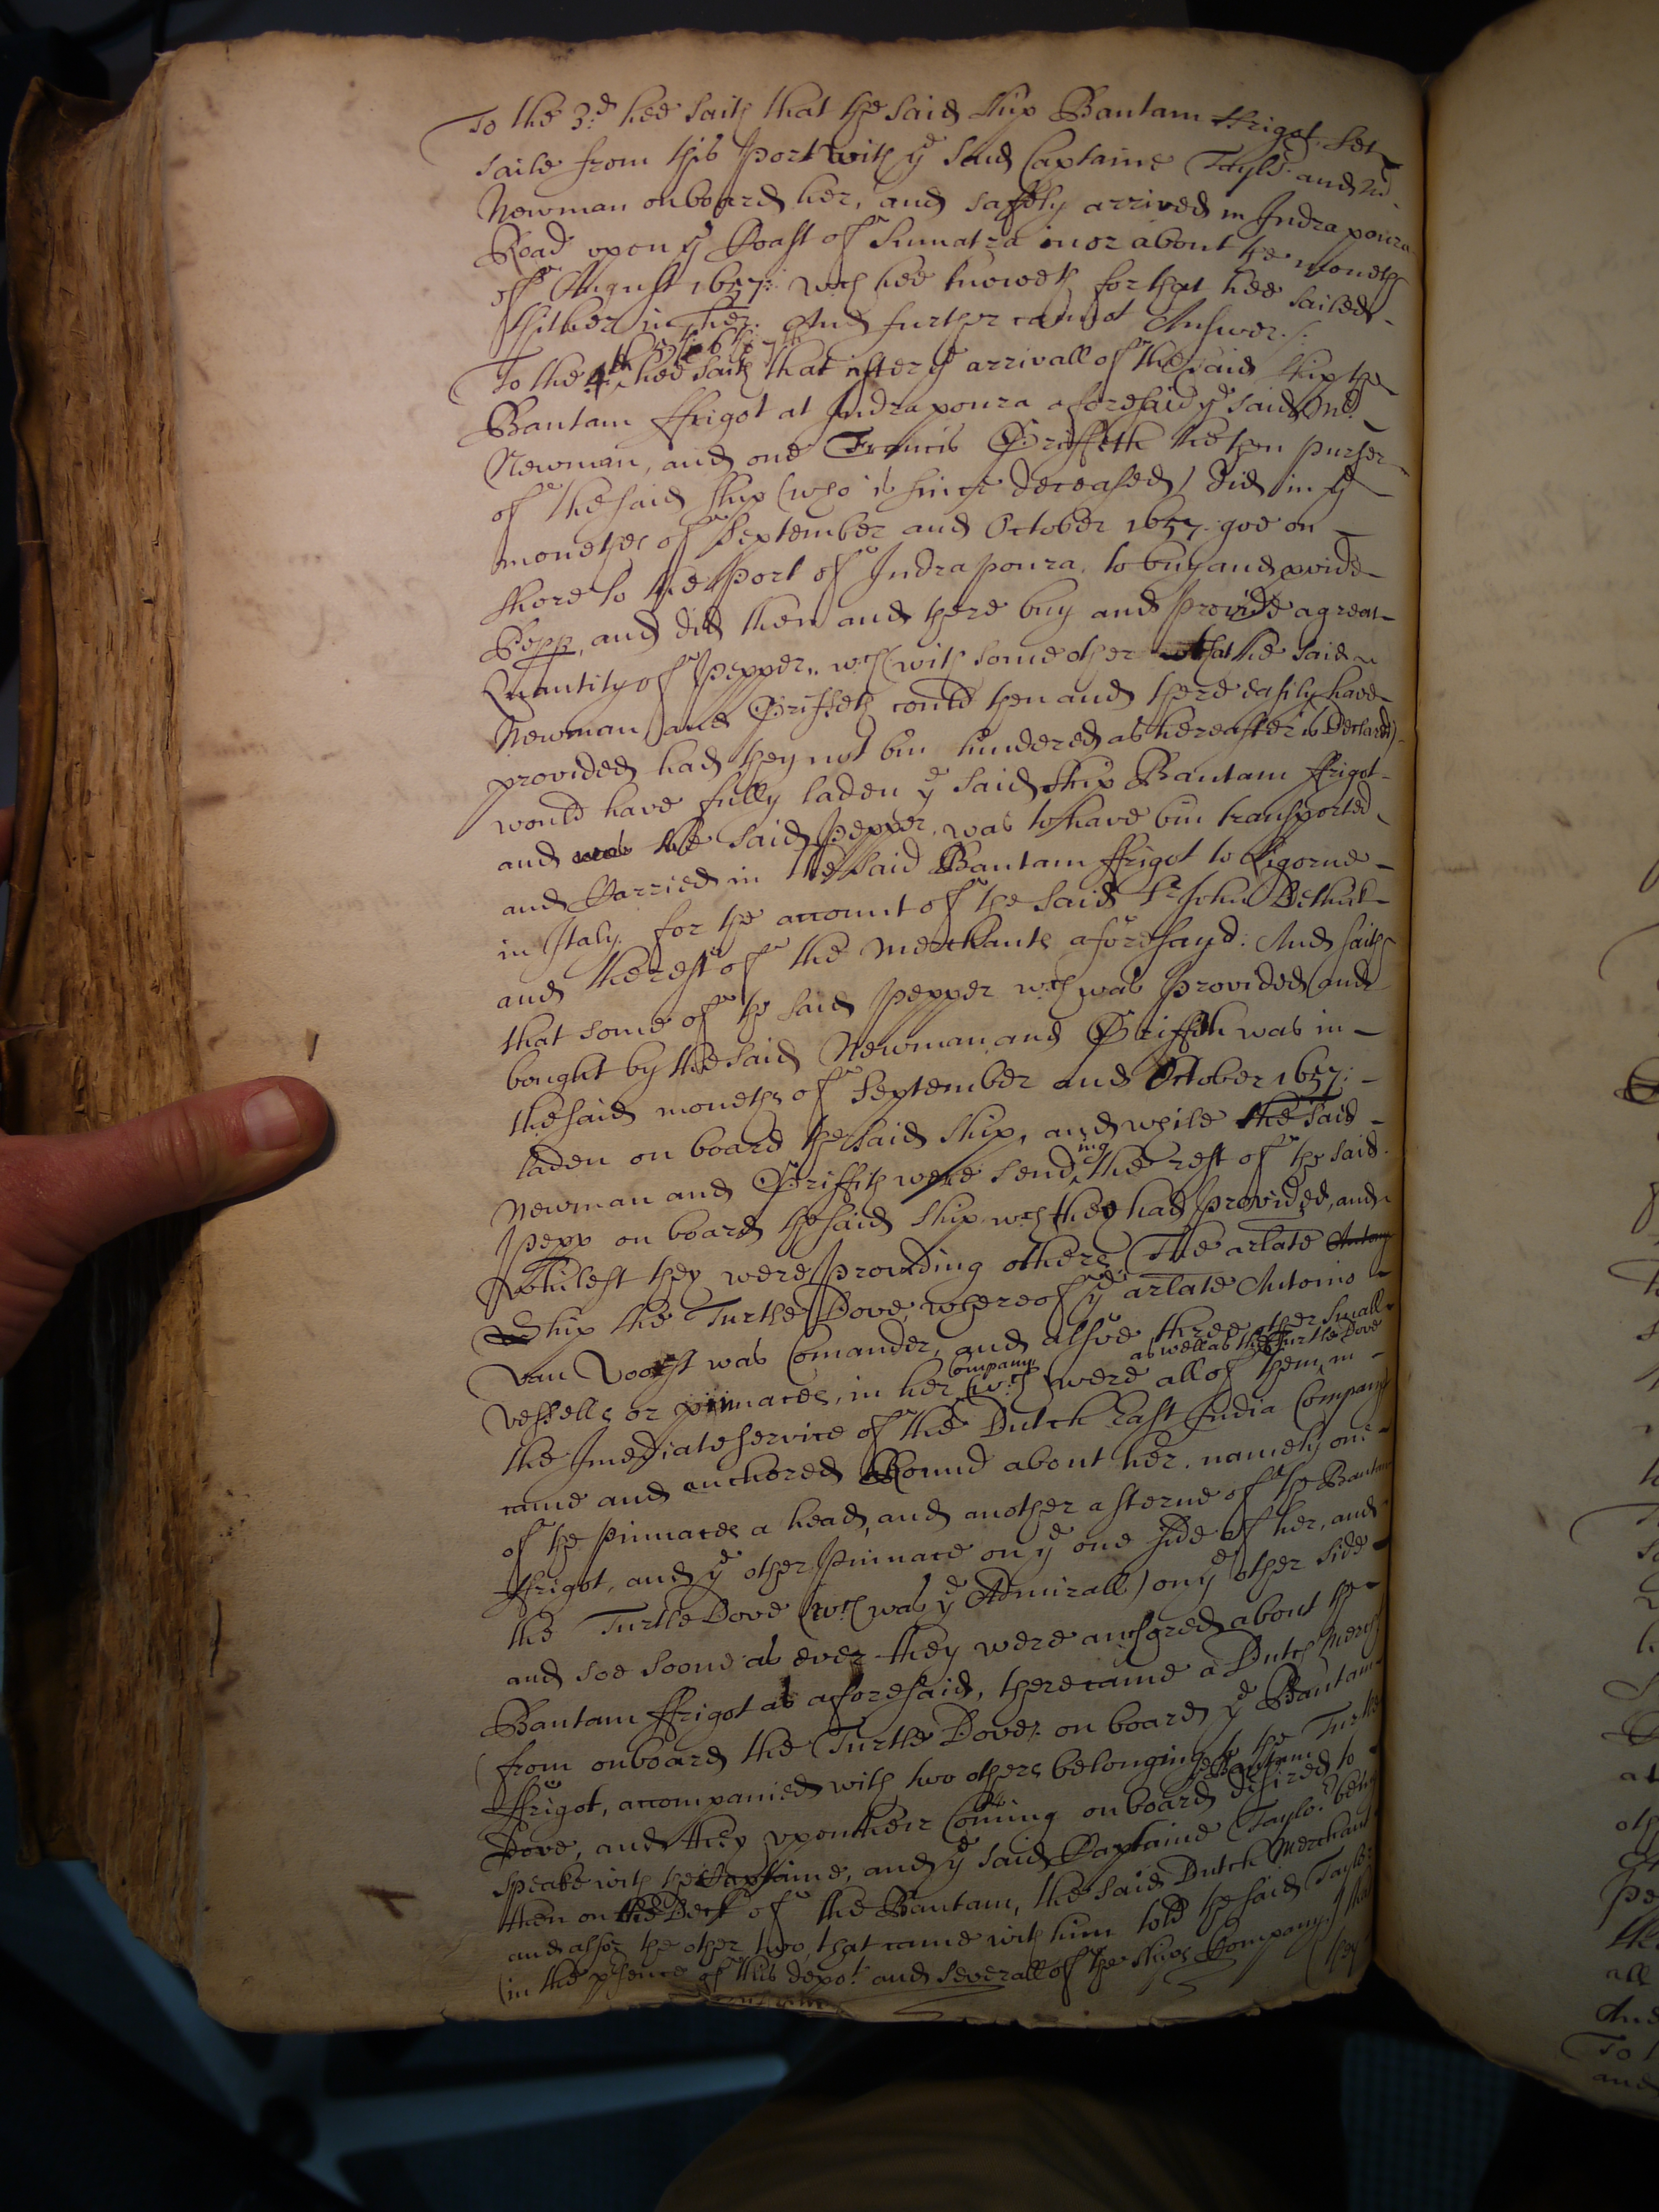 To the 3:d hee saith that the said ship Bantam ffrigot set
saile from this Port with ye said Captaine Taylor and Mr.
Newman onboard her, and safely arrived in Indrapoura
Road upon ye Coast of Sumatra in or about the moneth
off August 1657: wch hee knoweth for that hee sailed
thither in her. And further cannot Answer./:
To the 4th 5th 6th 7th hee saith that after ye arrivall of the said ship the
Bantam ffrigot at Indrapoura aforesaid ye said Mr.
Newman, and one Francis Griffith the then purser
of the said ship (who is since deceased) did in ye
monethes of September and October 1657. goe on
shore to the Port of Indrapoura, to buy and pvide
Pepp, and did then and there buy and provide a great
Quantity of Pepper, wch (with some other that the said
Newman and Griffith could then and there easily have
provided had they not bin hindered as hereafter is declared)
would have fully laden ye said ship Bantam ffrigot
and the said Pepper was to have bin transported
and Carried in the said Bantam ffrigot to Ligorne
in Italy. for the account of the said Sr John Dethick
and the rest of the Merchants aforesayd: And saith
that some of the said Pepper wch was provided and
bought by the said Newman and Griffith was in
the said moneths of September and October 1657:
laden on board the said ship, and while the said
Newman and Griffith were sending the rest of the said
Pepp on board the said ship wch they had provided, and
whilest they were providing others, The arlate
Ship the Turtle Dove, whereof ye arlate Antonio
Van Voorst was Comander, and alsoe three other small
vessells or pinnaces, in her company (wch were all of them as well as the Turtle Dove in
the Imediate service of the Dutch East India Company
came and anchored Round about her, namely one
of the pinnaces a head, and another a sterne of the Bantam
ffrigot, and ye other Pinnace on ye one side of her, and
the Turtle Dove (wch was ye Admirall) on ye other side
and soe soone as ever they were anchored about the
Bantam ffrigot as aforesaid, there came a Dutch Mercht
from onboard the Turtle Dove on board ye Bantam
ffrigot, accompanied with two others belonging to the Turtle
Dove, and they upon their Coming onboard ye Bantam desired to
speake with the Captaine, and ye said Captaine Taylor being
then on the Deck of the Bantam, the said Dutch Merchant
and alsoe the other two that came with him told the said Taylor
(in the psence of this depot. and severall of the ships Company) that
they